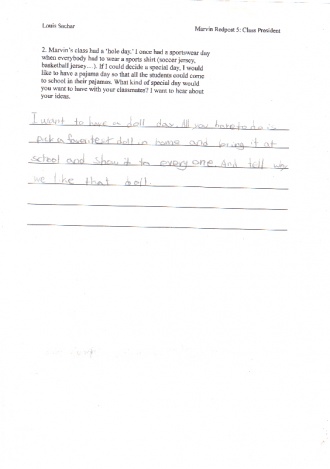 Louis Sachar
Marvin Redpost 5: Class President
2. Marvin's class had a 'hole day.' I once had a sportswear day
when everybody had to wear a sports shirt (soccer jersey,
basketball jersey…). If I could decide a special day, I would
like to have a pajama day so that all the students could come
to school in their pajamas. What kind of special day would
you want to have with your classmates? I want to hear about
your ideas.
I want to have a doll day. All you have to do is
pick a favoritest doll in home and bring it at
school and show it to everyone. And tell why
we like that doll.